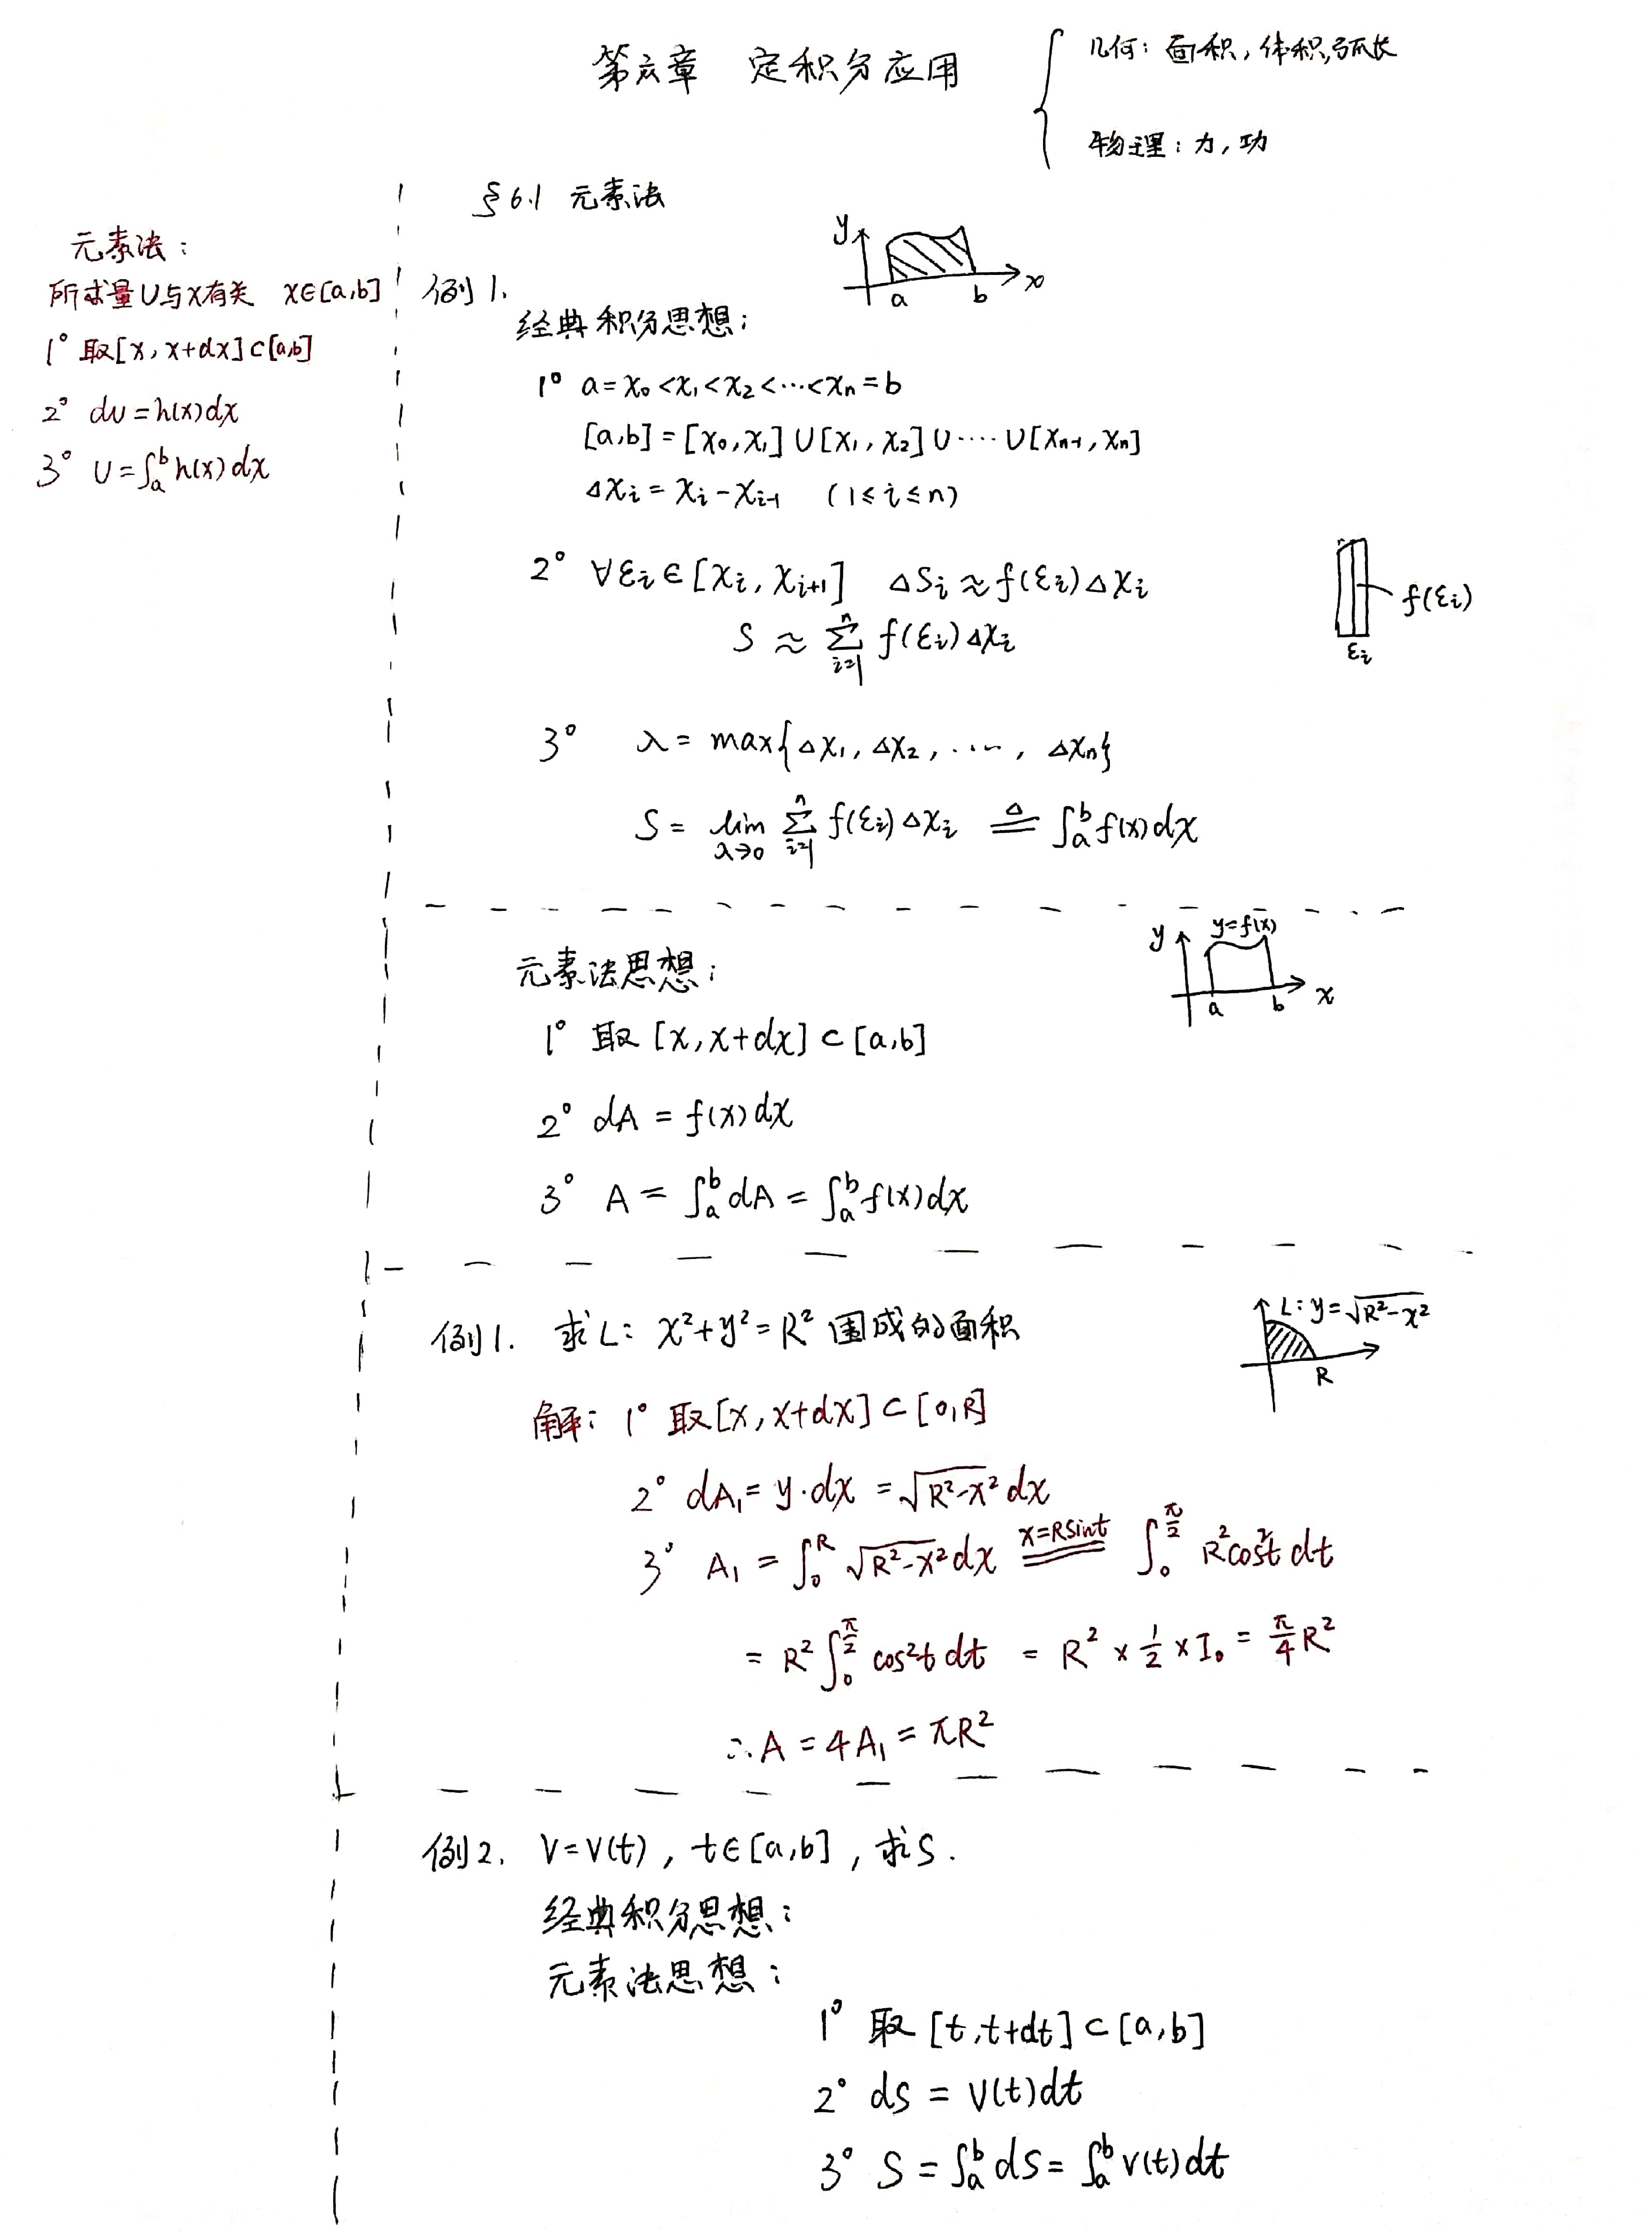 第六章 定积分应用
几何：面积，体积，弧长
物理：力，功
元素法：
所求量U与x有关 x∈[a,b]
1° 取[x, x+dx]⊂[a,b]
2° du=h(x)dx
3° U=∫_a^b h(x)dx
§6.1 元素法
例1.
y
a b x
经典积分思想：
1° a=x₀<x₁<x₂<⋯<xₙ=b
[a,b]=[x₀,x₁]∪[x₁,x₂]∪⋯⋯∪[xₙ₋₁,xₙ]
Δxᵢ=xᵢ-xᵢ₋₁ (1≤i≤n)
2° ∀εᵢ∈[xᵢ, xᵢ₊₁] ΔSᵢ≈f(εᵢ)Δxᵢ
S≈∑_{i=1}^n f(εᵢ)Δxᵢ
f(εᵢ)
εᵢ
3° λ=max{Δx₁, Δx₂, ⋯⋯, Δxₙ}
S=lim_{λ→0} ∑_{i=1}^n f(εᵢ)Δxᵢ ≜ ∫_a^b f(x)dx
元素法思想：
y y=f(x)
a b x
1° 取[x, x+dx]⊂[a,b]
2° dA=f(x)dx
3° A=∫_a^b dA=∫_a^b f(x)dx
例1. 求L: x²+y²=R²围成的面积
L: y=√(R²-x²)
R
解：1° 取[x, x+dx]⊂[0,R]
2° dA₁=y·dx=√(R²-x²)dx
3° A₁=∫_0^R √(R²-x²)dx ==(x=Rsint)== ∫_0^{π/2} R²cos²t dt
=R²∫_0^{π/2} cos²t dt = R²×1/2×I₀=π/4 R²
∴A=4A₁=πR²
例2. V=V(t), t∈[a,b], 求S.
经典积分思想：
元素法思想：
1° 取[t, t+dt]⊂[a,b]
2° dS=V(t)dt
3° S=∫_a^b dS=∫_a^b V(t)dt